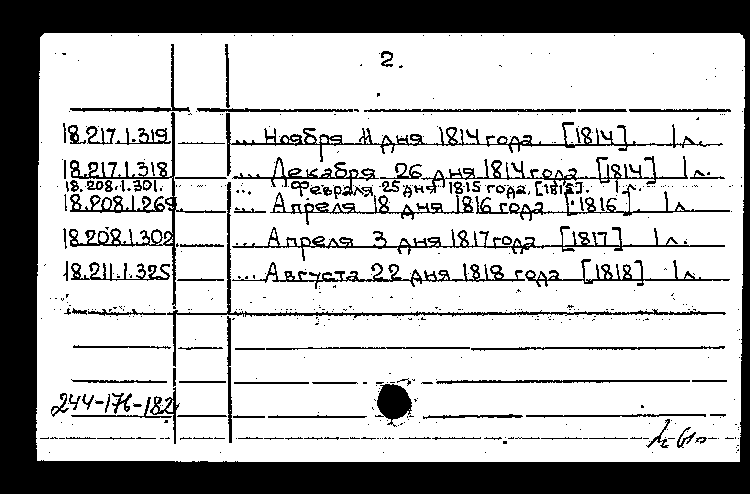 2.
18.217.1.319 ... Ноября 11 дня 1814 года. [1814]. 1 л.
18.217.1.318 ... Декабря 26 дня 1814 года [1814] 1 л.
18.208.1.301. ... Февраля 25 дня 1815 года. [1815]. 1 л.
18.208.1.269. ... Апреля 18 дня 1816 года [1816]. 1 л.
18.208.1.302 ... Апреля 3 дня 1817 года. [1817]. 1 л.
18.211.1.325 ... Августа 22 дня 1818 года [1818] 1 л.
244-176-182